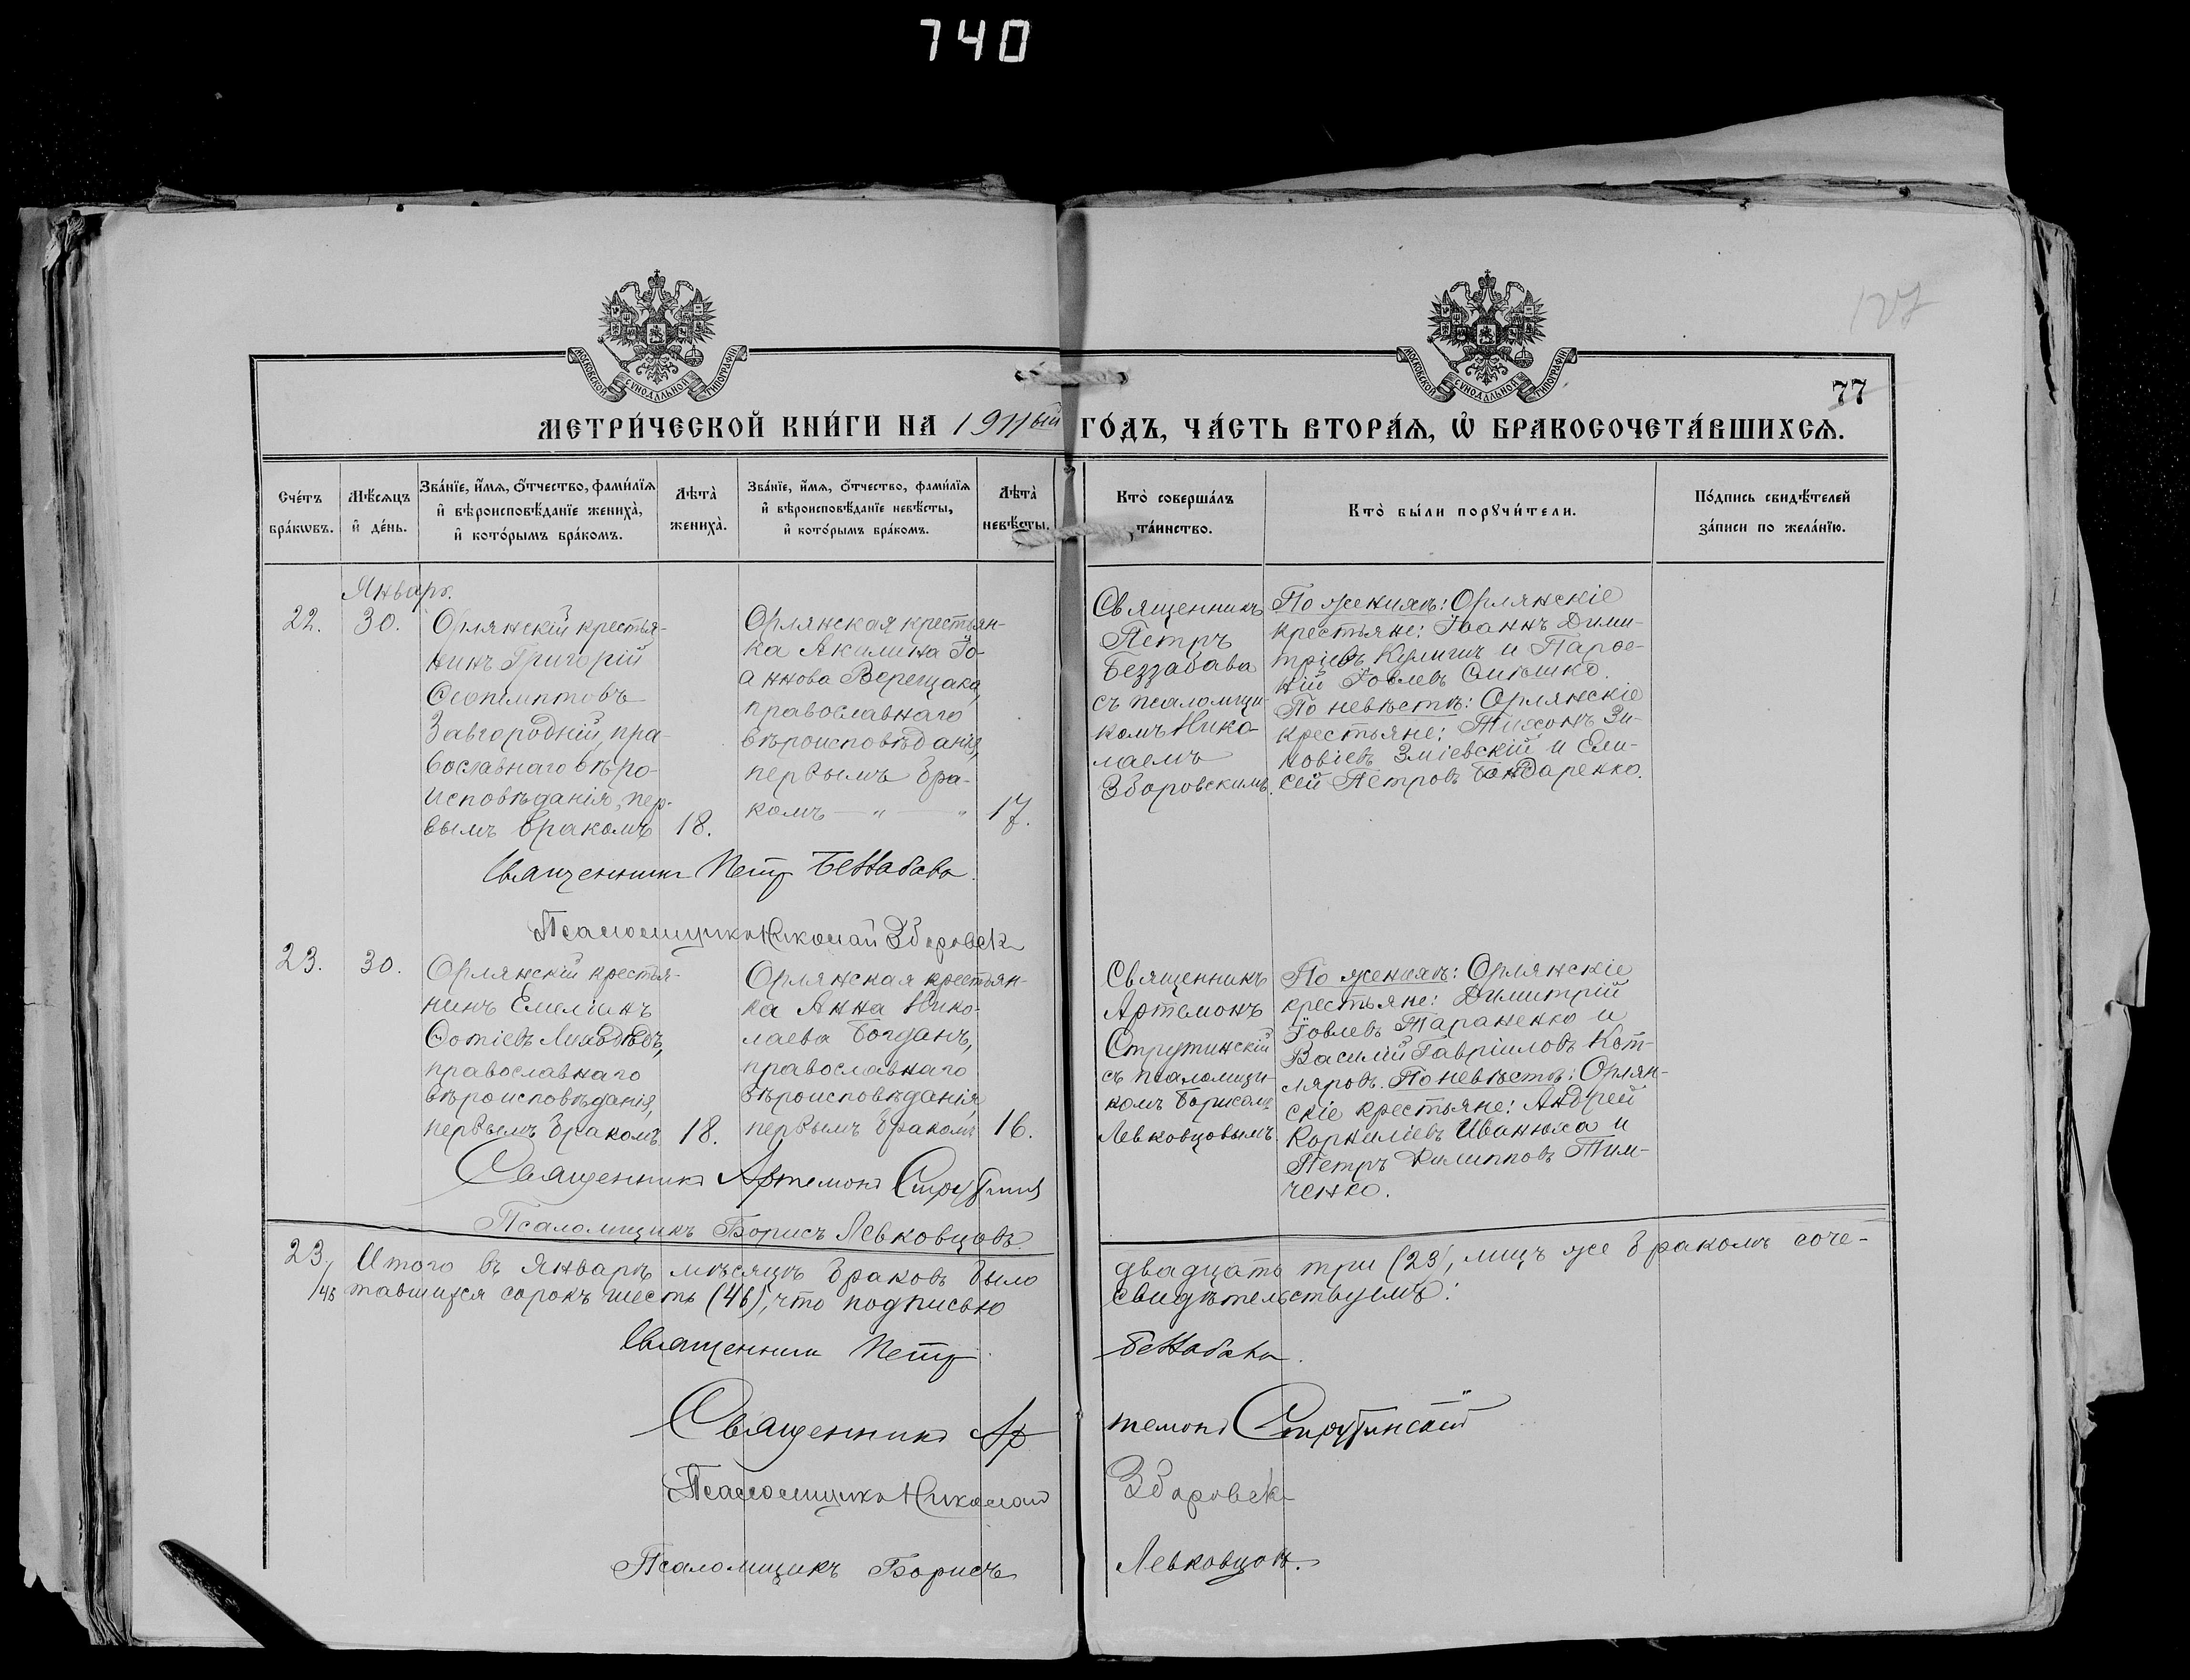 740
127
77
МЕТРИ́ЧЕСКОЙ КНИ́ГИ НА 1911ый ГО́ДЪ, ЧА́СТЬ ВТОРА́Ѧ, Ѽ БРАКОСОЧЕТА́ВШИХСѦ.
Сче́тъ бра́кѡвъ.
Мѣ́сяцъ и҆ де́нь.
Зва́нїе, и҆́мѧ, ѻ҆́тчество, фами́лїѧ
и҆ вѣроисповѣ́данїе жениха̀,
и҆ кото́рымъ бра́комъ.
Лѣта̀ жениха̀.
Зва́нїе, и҆́мѧ, ѻ҆́тчество, фами́лїѧ
и҆ вѣроисповѣ́данїе невѣ́сты,
и҆ кото́рымъ бра́комъ.
Лѣта̀ невѣ́сты.
Кто̀ соверша́лъ
та́инство.
Кто̀ бы́ли порꙋчи́тели.
По́дпись свидѣ́телей
за́писи по жела́нїю.
Январь.
22.
30.
Орлянскій крестья-
нинъ Григорій
Ѳеопемптовъ
Завгородній, пра-
вославнаго вѣро-
исповѣданія, пер-
вымъ бракомъ
18.
Орлянская крестьян-
ка Акилина Іо-
аннова Верещака,
православнаго
вѣроисповѣданія,
первымъ бра-
комъ — „ — „
17.
Священникъ
Петръ
Беззабава
съ псаломщи-
комъ Нико-
лаемъ
Зборовскимъ.
По женихѣ: Орлянскіе
крестьяне: Іоаннъ Дими-
тріевъ Кулишъ и Парѳе-
ній Іовлевъ
По невѣстѣ: Орлянскіе
крестьяне: Тихонъ Зи-
новіевъ Зміевскій и Ели-
сей Петровъ Бондаренко.
Священникъ Петр Беззабава
Псаломщикъ Николай Зборовск
23.
30.
Орлянскій крестья-
нинъ Емеліанъ
Ѳотіевъ
православнаго
вѣроисповѣданія,
первымъ бракомъ
18.
Орлянская крестьян-
ка Анна Нико-
лаева Богданъ,
православнаго
вѣроисповѣданія,
первымъ бракомъ
16.
Священникъ
Артемонъ
Струтинскій
съ псаломщи-
комъ Борисомъ
Левковцовымъ.
По женихѣ: Орлянскіе
крестьяне: Димитрій
Іовлевъ Тараненко и
Василій Гавріиловъ Кот-
ляровъ. По невѣстѣ: Орлян-
скіе крестьяне: Андрей
Корниліевъ Иванюха и
Петръ Филипповъ Тим-
ченко.
Священникъ Артемонъ Струтинск
Псаломщикъ Борисъ Левковцовъ.
23/46 Итого въ Январѣ мѣсяцѣ браковъ было двадцать три (23), лицъ же бракомъ соче-
тавшихся сорокъ шесть (46), что подписью свидѣтельствуемъ:
Священникъ Петр Беззабава.
Священникъ Артемонъ Струтинскій
Псаломщикъ Николай Зборовск
Псаломщикъ Борисъ Левковцовъ.